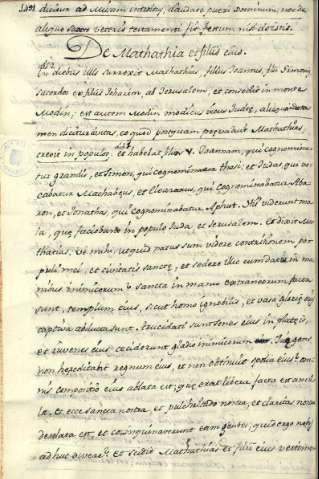 De Mathathia et filiis eius.
In diebus illis surrexit Mathathias, filius Joannis, filii Simeonis
sacerdos ex filiis Joharim, ab Jerusalem, et consedit in monte
Modin, est autem Modin modicus vicus Judæ,
men dicitur
et habebat filios V. Joannem, qui cognomina
tur et Simon, qui cognominatur Thasi; et Judas, qui vo
cabatur Machabeus, et Eleazarus, qui cognominabatur Aba
ron, et Jonathas, qui cognominabatur Aphus. Hi viderunt ma
la, quæ faciebant in populo Juda, et Jerusalem. et dixit Ma
thathias, ve mihi, ut quid natus sum videre contritionem po
puli mei, et civitatis sanctæ, et sedere illic cum datur in ma
nibus inimicorum? sancta in manu extraneorum facta
sunt, templum eius, sicut homo ignobilis, et vasa gloriæ eius
captiva abducta sunt, trucidati sunt senes eius in plateis,
et iuvenes eius ceciderunt gladio inimicorum. Quæ gens
non hereditavit regnum eius, et non obtinuit spolia eius? om
nis compositio eius ablata est, quæ erat libera facta est ancil
la, et ecce sancta nostra, et pulchritudo nostra, et claritas nostra
desolata est, et coinquinaverunt eam gentes, quid ergo nobis
adhuc vivere? et scidit Mathathias et filii eius vestimen